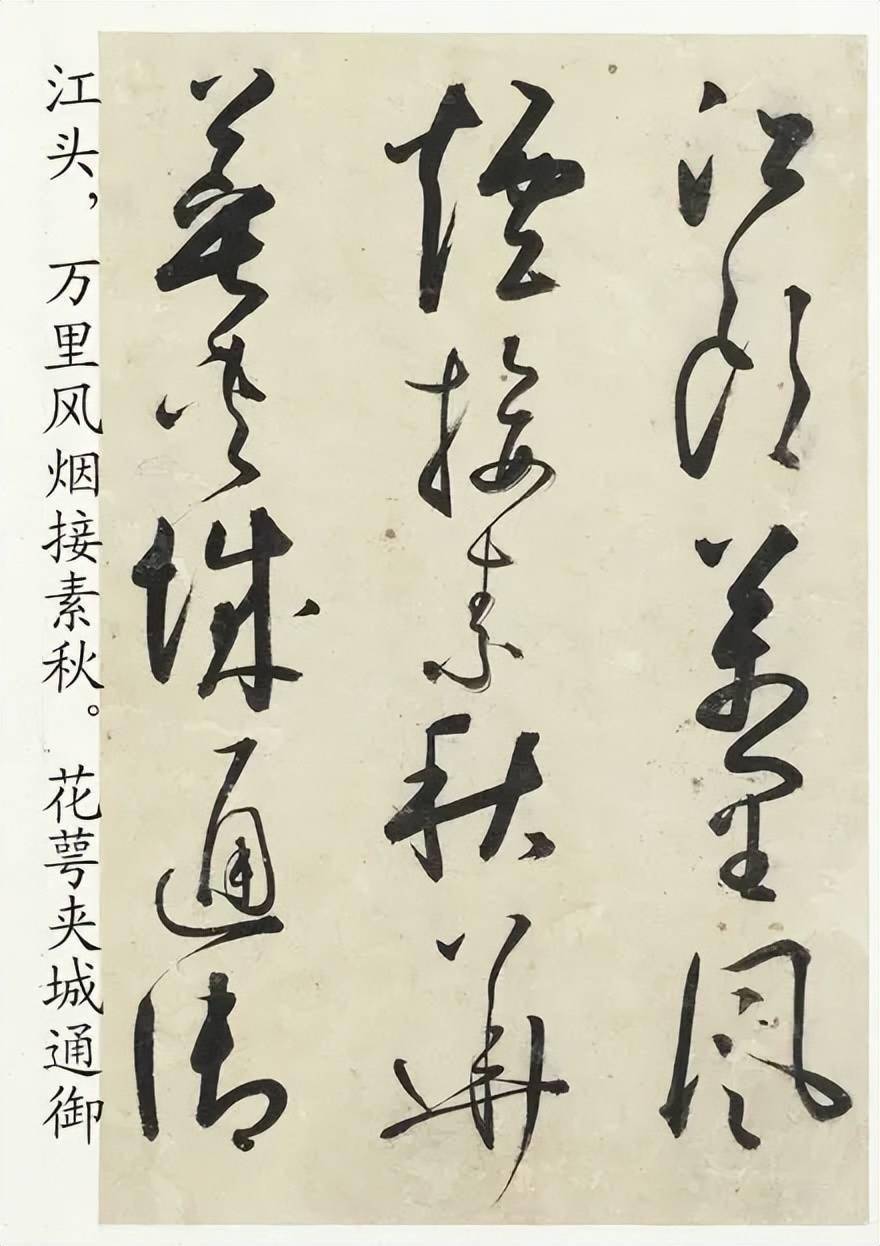 江頭萬里風
煙接素秋華
萼夾城通御
江头，万里风烟接素秋。花萼夹城通御